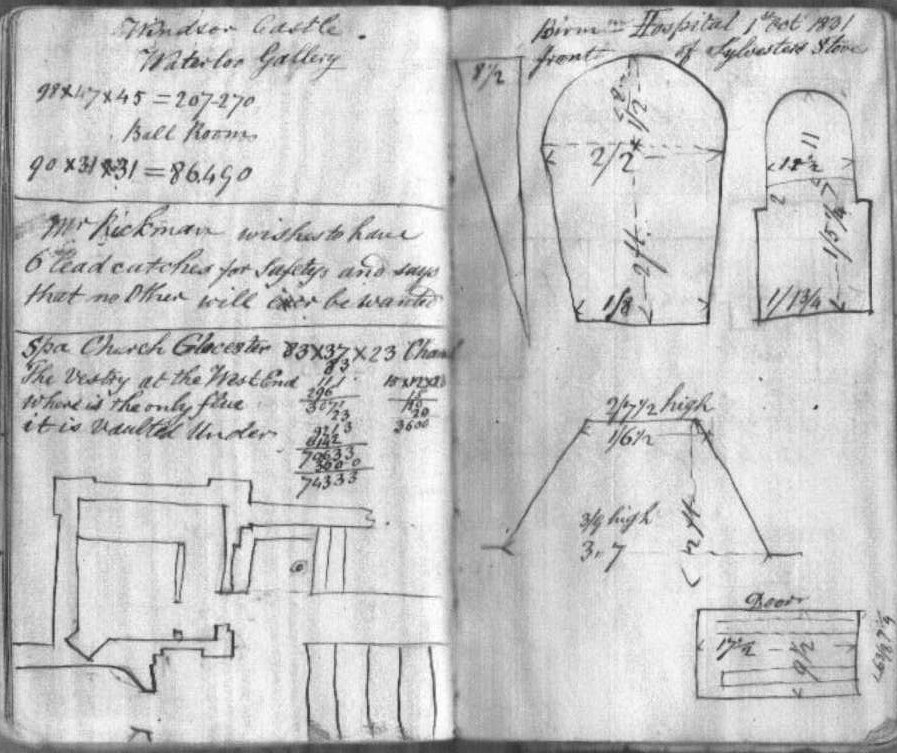 Windsor Castle.
Waterloo Gallery
98×47×45 = 207.270
Ball Room
90×31×31 = 86.490
Mr Rickman wishes to have
6 lead catches for Safetys and says
that no Other will ever be wanted
Spa Church Glocester 83×37×23 Chan
The Vestry at the West End
where is the only flue
it is Vaulted Under
83
111
296
3071
23
9213
6142
70633
3600
74333
15
20
3600
Birmm Hospital 1st Oct 1831
front of Sylvesters Stove
8½
2/2
2 ft
1/8
11
18½
2
1/5¼
1/1¾
2/7½ high
1/6½
3/9 high
3..7
2 ft
Door
17½
9½